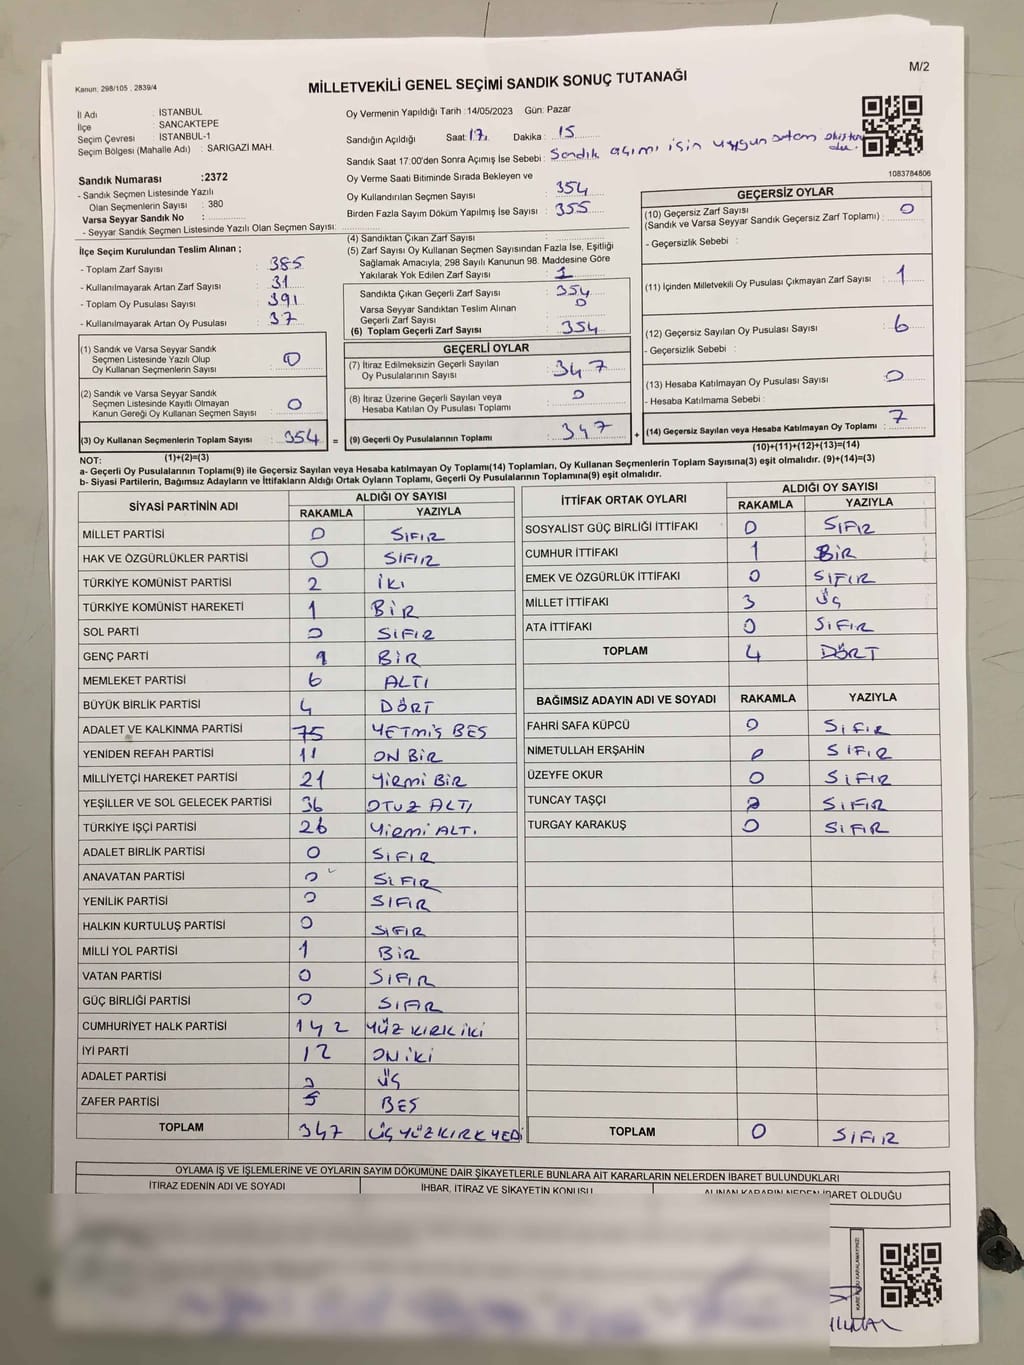 M/2
Kanun, 298/105 , 2839/4
MİLLETVEKİLİ GENEL SEÇİMİ SANDIK SONUÇ TUTANAĞI
İl Adı : İSTANBUL
İlçe : SANCAKTEPE
Seçim Çevresi : İSTANBUL-1
Seçim Bölgesi (Mahalle Adı) : SARIGAZİ MAH.
Oy Vermenin Yapıldığı Tarih : 14/05/2023 Gün: Pazar
Sandığın Açıldığı Saat: 17 Dakika : 15
Sandık Saat 17.00'den Sonra Açımış İse Sebebi : Sandık açımı için uygun ortam
1083784806
Sandık Numarası :2372
- Sandık Seçmen Listesinde Yazılı
Olan Seçmenlerin Sayısı : 380
Varsa Seyyar Sandık No :
- Seyyar Sandık Seçmen Listesinde Yazılı Olan Seçmen Sayısı:
Oy Verme Saati Bitiminde Sırada Bekleyen ve
Oy Kullandırılan Seçmen Sayısı : 354
Birden Fazla Sayım Döküm Yapılmış İse Sayısı : 355
İlçe Seçim Kurulundan Teslim Alınan ;
- Toplam Zarf Sayısı : 385
- Kullanılmayarak Artan Zarf Sayısı : 31
- Toplam Oy Pusulası Sayısı : 391
- Kullanılmayarak Artan Oy Pusulası : 37
(4) Sandıktan Çıkan Zarf Sayısı :
(5) Zarf Sayısı Oy Kullanan Seçmen Sayısından Fazla İse, Eşitliği
Sağlamak Amacıyla, 298 Sayılı Kanunun 98. Maddesine Göre
Yakılarak Yok Edilen Zarf Sayısı : 1
Sandıkta Çıkan Geçerli Zarf Sayısı : 354
Varsa Seyyar Sandıktan Teslim Alınan
Geçerli Zarf Sayısı : 0
(6) Toplam Geçerli Zarf Sayısı : 354
(1) Sandık ve Varsa Seyyar Sandık
Seçmen Listesinde Yazılı Olup
Oy Kullanan Seçmenlerin Sayısı : 0
(2) Sandık ve Varsa Seyyar Sandık
Seçmen Listesinde Kayıtlı Olmayan
Kanun Gereği Oy Kullanan Seçmen Sayısı : 0
(3) Oy Kullanan Seçmenlerin Toplam Sayısı : 354 =
(1)+(2)=(3)
GEÇERLİ OYLAR
(7) İtiraz Edilmeksizin Geçerli Sayılan
Oy Pusulalarının Sayısı : 347
(8) İtiraz Üzerine Geçerli Sayılan veya
Hesaba Katılan Oy Pusulası Toplamı : 0
(9) Geçerli Oy Pusulalarının Toplamı : 347 +
GEÇERSİZ OYLAR
(10) Geçersiz Zarf Sayısı
(Sandık ve Varsa Seyyar Sandık Geçersiz Zarf Toplamı) : 0
- Geçersizlik Sebebi :
(11) İçinden Milletvekili Oy Pusulası Çıkmayan Zarf Sayısı : 1
(12) Geçersiz Sayılan Oy Pusulası Sayısı : 6
- Geçersizlik Sebebi :
(13) Hesaba Katılmayan Oy Pusulası Sayısı : 0
- Hesaba Katılmama Sebebi :
(14) Geçersiz Sayılan veya Hesaba Katılmayan Oy Toplamı : 7
(10)+(11)+(12)+(13)=(14)
NOT:
a- Geçerli Oy Pusulalarının Toplamı(9) ile Geçersiz Sayılan veya Hesaba katılmayan Oy Toplamı(14) Toplamları, Oy Kullanan Seçmenlerin Toplam Sayısına(3) eşit olmalıdır. (9)+(14)=(3)
b- Siyasi Partilerin, Bağımsız Adayların ve İttifakların Aldığı Ortak Oyların Toplamı, Geçerli Oy Pusulalarının Toplamına(9) eşit olmalıdır.
SİYASİ PARTİNİN ADI ALDIĞI OY SAYISI
RAKAMLA YAZIYLA
MİLLET PARTİSİ 0 SIFIR
HAK VE ÖZGÜRLÜKLER PARTİSİ 0 SIFIR
TÜRKİYE KOMÜNİST PARTİSİ 2 İKİ
TÜRKİYE KOMÜNİST HAREKETİ 1 BİR
SOL PARTİ 0 SIFIR
GENÇ PARTİ 1 BİR
MEMLEKET PARTİSİ 6 ALTI
BÜYÜK BİRLİK PARTİSİ 4 DÖRT
ADALET VE KALKINMA PARTİSİ 75 YETMİŞ BEŞ
YENİDEN REFAH PARTİSİ 11 ON BİR
MİLLİYETÇİ HAREKET PARTİSİ 21 YİRMİ BİR
YEŞİLLER VE SOL GELECEK PARTİSİ 36 OTUZ ALTI
TÜRKİYE İŞÇİ PARTİSİ 26 YİRMİ ALTI
ADALET BİRLİK PARTİSİ 0 SIFIR
ANAVATAN PARTİSİ 0 SIFIR
YENİLİK PARTİSİ 0 SIFIR
HALKIN KURTULUŞ PARTİSİ 0 SIFIR
MİLLİ YOL PARTİSİ 1 BİR
VATAN PARTİSİ 0 SIFIR
GÜÇ BİRLİĞİ PARTİSİ 0 SIFIR
CUMHURİYET HALK PARTİSİ 142 YÜZ KIRK İKİ
İYİ PARTİ 12 ON İKİ
ADALET PARTİSİ 3 ÜÇ
ZAFER PARTİSİ 5 BEŞ
TOPLAM 347 ÜÇ YÜZ KIRK YEDİ
İTTİFAK ORTAK OYLARI ALDIĞI OY SAYISI
RAKAMLA YAZIYLA
SOSYALİST GÜÇ BİRLİĞİ İTTİFAKI 0 SIFIR
CUMHUR İTTİFAKI 1 BİR
EMEK VE ÖZGÜRLÜK İTTİFAKI 0 SIFIR
MİLLET İTTİFAKI 3 ÜÇ
ATA İTTİFAKI 0 SIFIR
TOPLAM 4 DÖRT
BAĞIMSIZ ADAYIN ADI VE SOYADI RAKAMLA YAZIYLA
FAHRİ SAFA KÜPCÜ 0 SIFIR
NİMETULLAH ERŞAHİN 0 SIFIR
ÜZEYFE OKUR 0 SIFIR
TUNCAY TAŞÇI 0 SIFIR
TURGAY KARAKUŞ 0 SIFIR
TOPLAM 0 SIFIR
OYLAMA İŞ VE İŞLEMLERİNE VE OYLARIN SAYIM DÖKÜMÜNE DAİR ŞİKAYETLERLE BUNLARA AİT KARARLARIN NELERDEN İBARET BULUNDUKLARI
İTİRAZ EDENİN ADI VE SOYADI İHBAR, İTİRAZ VE ŞİKAYETİN KONUSU ALINAN KARARIN NEDEN İBARET OLDUĞU